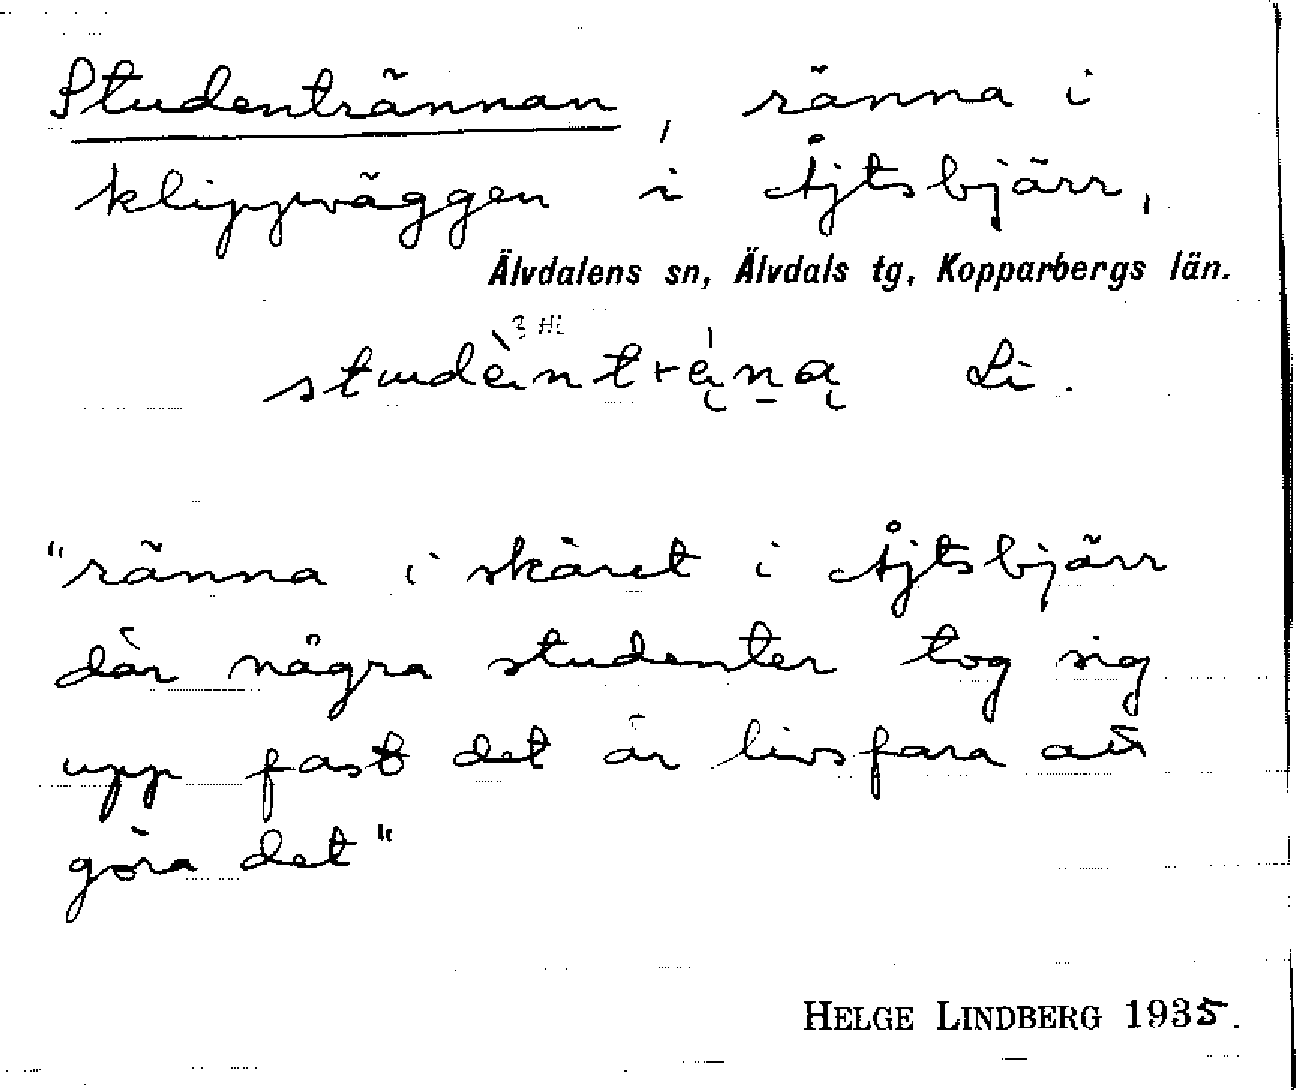 Studentrännan, ränna i
klippväggen i Åjtsbjärr,
Älvdalens sn, Älvdals tg, Kopparbergs län.
Li.
"ränna i skäret i Åjtsbjärr
där några studenter tog sig
upp fast det är livsfara att
göra det"
HELGE LINDBERG 1935.